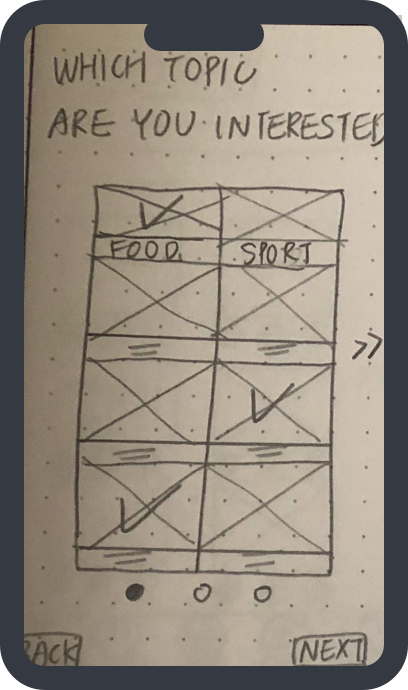 WHICH TOPIC
ARE YOU INTERESTED
FOOD SPORT
>>
BACK NEXT